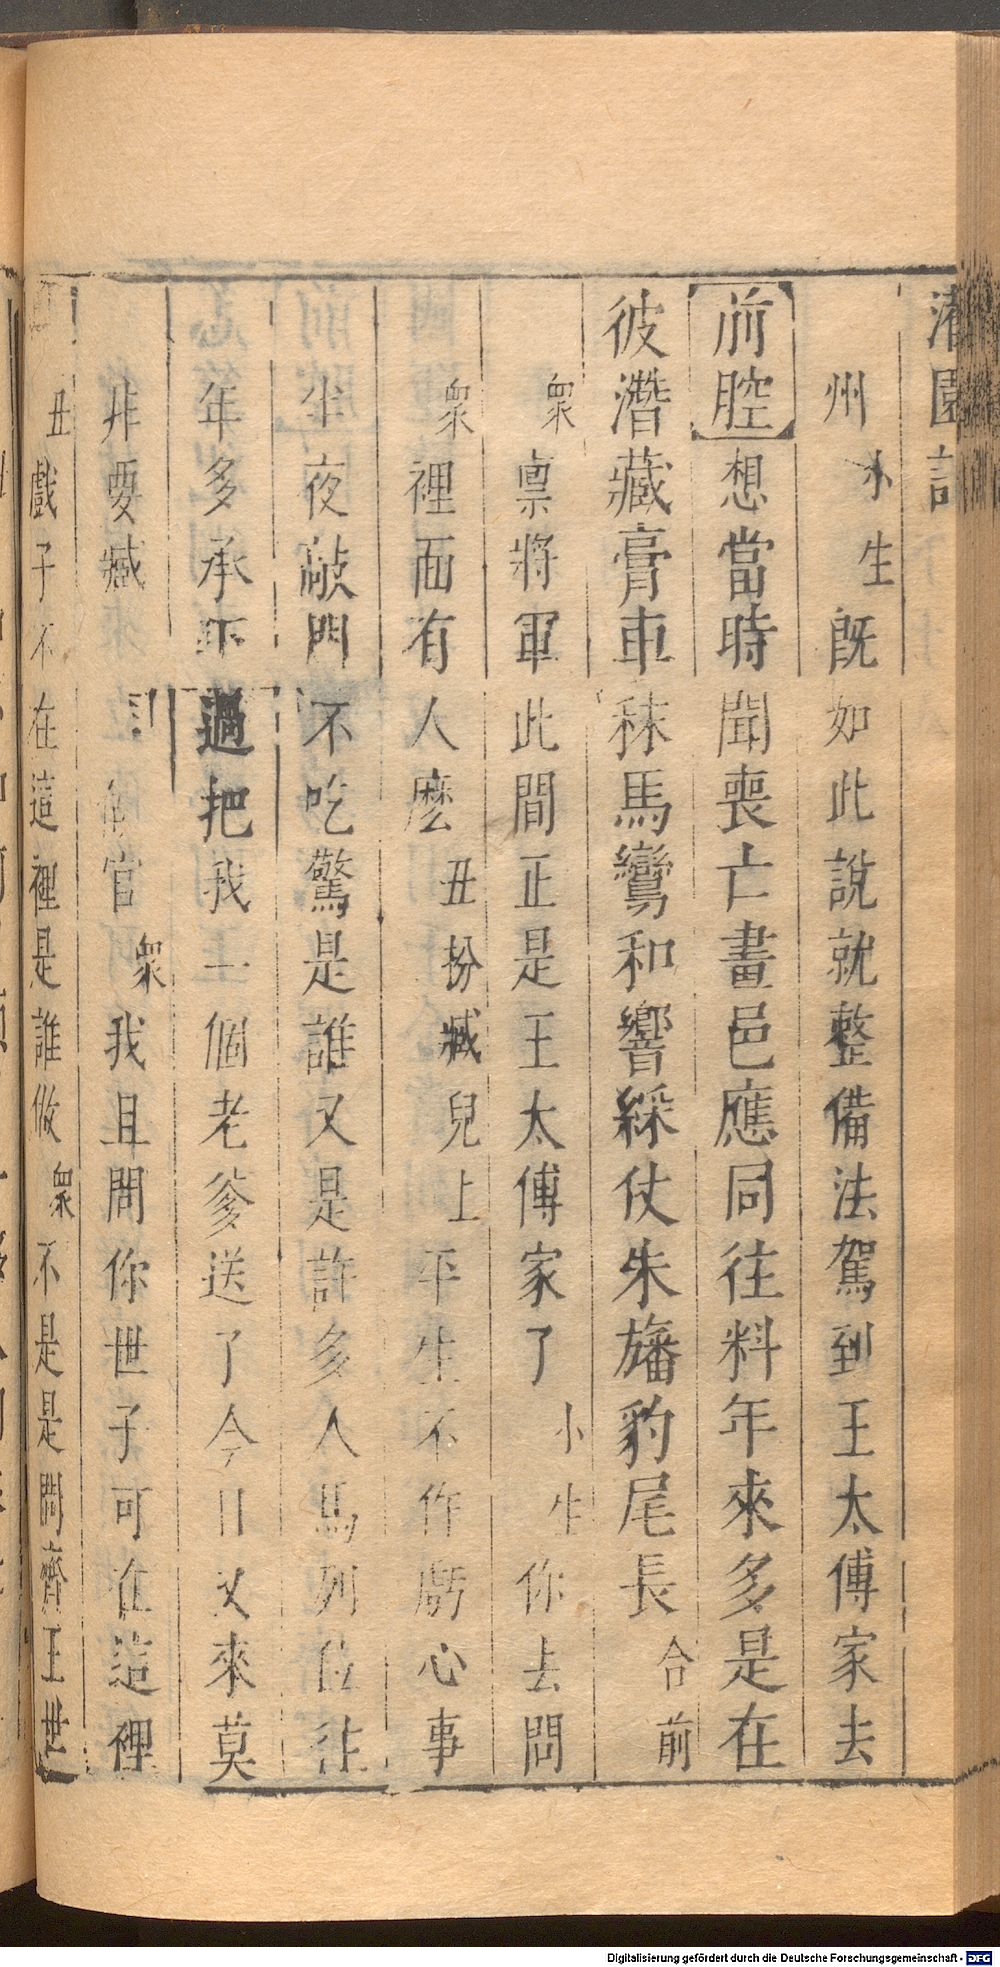 園記
州小生既如此說就整備法駕到王太傅家去
前腔想當時聞喪亡畫邑應同往料年來多是在
彼潛藏膏車秣馬鸞和響綵仗朱旛豹尾長合前
衆稟將軍此間正是王太傅家了小生你去問
衆裡面有人麽丑扮臧兒上平生不作虧心事
半夜敲門不吃驚是誰又是許多人馬列位
年多承下過把我一個老爹送了今日又來莫
非要臧官衆我且問你世子可在這裡
丑戲子不在這裡是誰做衆不是是問齊王世
Digitalisierung gefördert durch die Deutsche Forschungsgemeinschaft - DFG